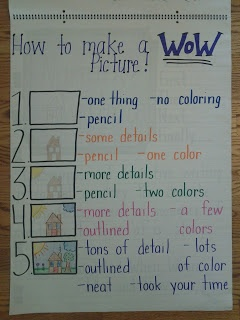 How to make a WOW
Picture!
1. -one thing -no coloring
-pencil
2. -some details
-pencil -one color
3. -more details
-pencil -two colors
4. -more details -a few
-outlined colors
5. -tons of detail -lots
-outlined of color
-neat -took your time